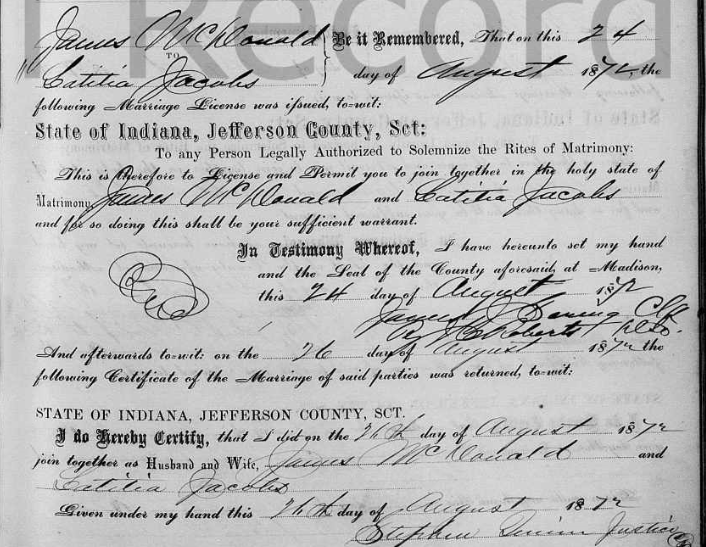 Record
James McDonald } Be it Remembered, That on this 24
TO
Latitia Jacobs } day of August 1872, the
following Marriage License was issued, to-wit:
State of Indiana, Jefferson County, Sct:
To any Person Legally Authorized to Solemnize the Rites of Matrimony:
This is therefore to License and Permit you to join together in the holy state of
Matrimony, James McDonald and Latitia Jacobs
and for so doing this shall be your sufficient warrant.
In Testimony Whereof, I have hereunto set my hand
and the Seal of the County aforesaid, at Madison,
this 24 day of August 1872
James Clk
By Roberts
And afterwards to-wit: on the 26 day of August 1872 the
following Certificate of the Marriage of said parties was returned, to-wit:
STATE OF INDIANA, JEFFERSON COUNTY, SCT.
I do Hereby Certify, that I did on the 26th day of August 1872
join together as Husband and Wife, James McDonald and
Latitia Jacobs
Given under my hand this 26th day of August 1872
Stephen Justice